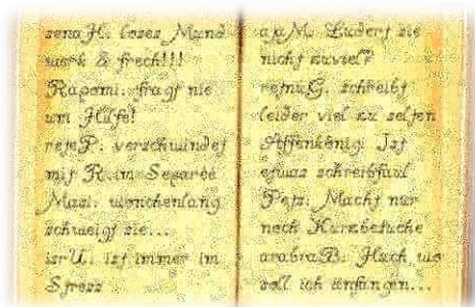 xenaH. loses Mund
werk & frech!!!
Rapomi: fragt nie
um Hilfe!
rejeP. verschwindet
mit R.im Separée
Maxi: wochenlang
schweigt sie...
isrU. ist immer im
Stress
ajaM. Ludert sie
nicht zuviel?
rejnuG. schreibt
leider viel zu selten
Affenkönig: Ist
etwas schreibfaul
Pets: Macht nur
noch Kurzbesuche
arabraB: Huch wo
soll ich anfangen...